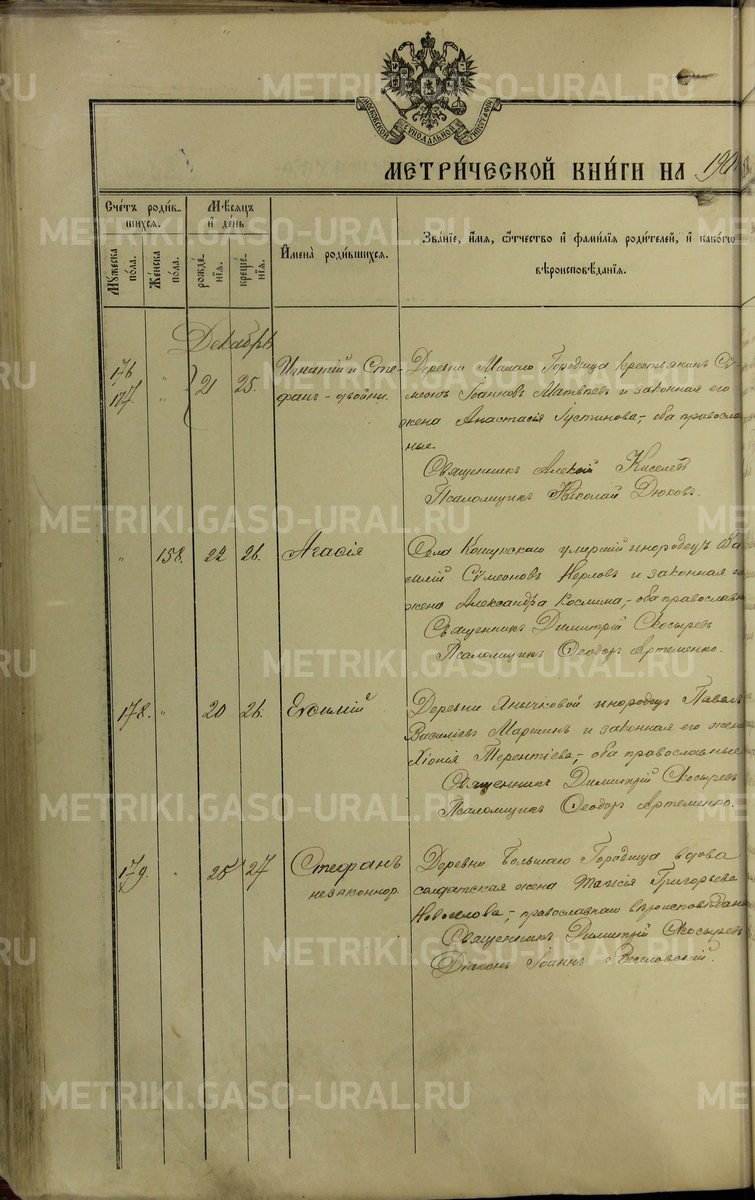 МОСКОВСКОЙ СУНОДАЛЬНОЙ ТИПОГРАФІИ
МЕТРИ́ЧЕСКОЙ КНИ́ГИ НА 190
Сче́тъ роди́в-
шихся.
Мꙋ́жеска по́ла.
Же́нска по́ла.
Мѣ́сѧцъ
и҆ де́нь
рожде́-
нїѧ.
креще́-
нїѧ.
И҆мена̀ роди́вшихсѧ.
Зва́нїе, и҆́мѧ, ѻ҆́тчество и҆ фами́лїѧ роди́телей, и҆ како́гѡ
вѣроисповѣ́данїѧ.
Декабрь
176
177 " 21 25. Игнатій и Сте-
фанъ - двойни.
Деревни Малаго Городища крестьянинъ Сѵ-
меонъ Іоанновъ Матвѣевъ и законная его
жена Анастасія Іустинова, - оба православ
ные.
Священникъ Алексій Киселевъ
Псаломщикъ Николай Дюковъ.
" 158. 22 26. Агасія
Села Кошукскаго умершій инородецъ Ва
силій Сѵмеоновъ и законная
жена Александра Космина, - оба православ
Священникъ Димитрій Скосыревъ
Псаломщикъ Ѳеодоръ Артеменко.
178. " 20 26. Евѳимій
Деревни Яничковой инородецъ Павелъ
Василіевъ Маршинъ и законная его жена
Хіонія Терентіева, - оба православные
Священникъ Димитрій Скосыревъ
Псаломщикъ Ѳеодоръ Артеменко.
179. " 25 27 Стефанъ
незаконнор.
Деревни Большаго Городища вдова
солдатская жена Таисія Григорьева
Новоселова, - православнаго вѣроисповѣдан
Священникъ Димитрій Скосыревъ
Діаконъ Іоаннъ
METRIKI.GASO-URAL.RU